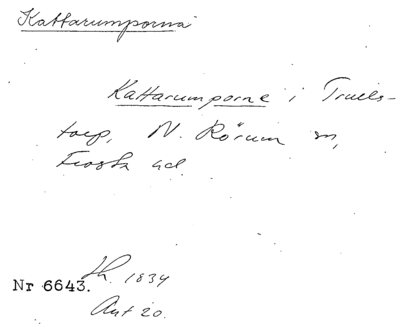 Kattarumporna
Kattarumporne i Truels-
torp, N. Rörum sn,
Frosta hd
Lh. 1834
Nr 6643.
Akt 20.